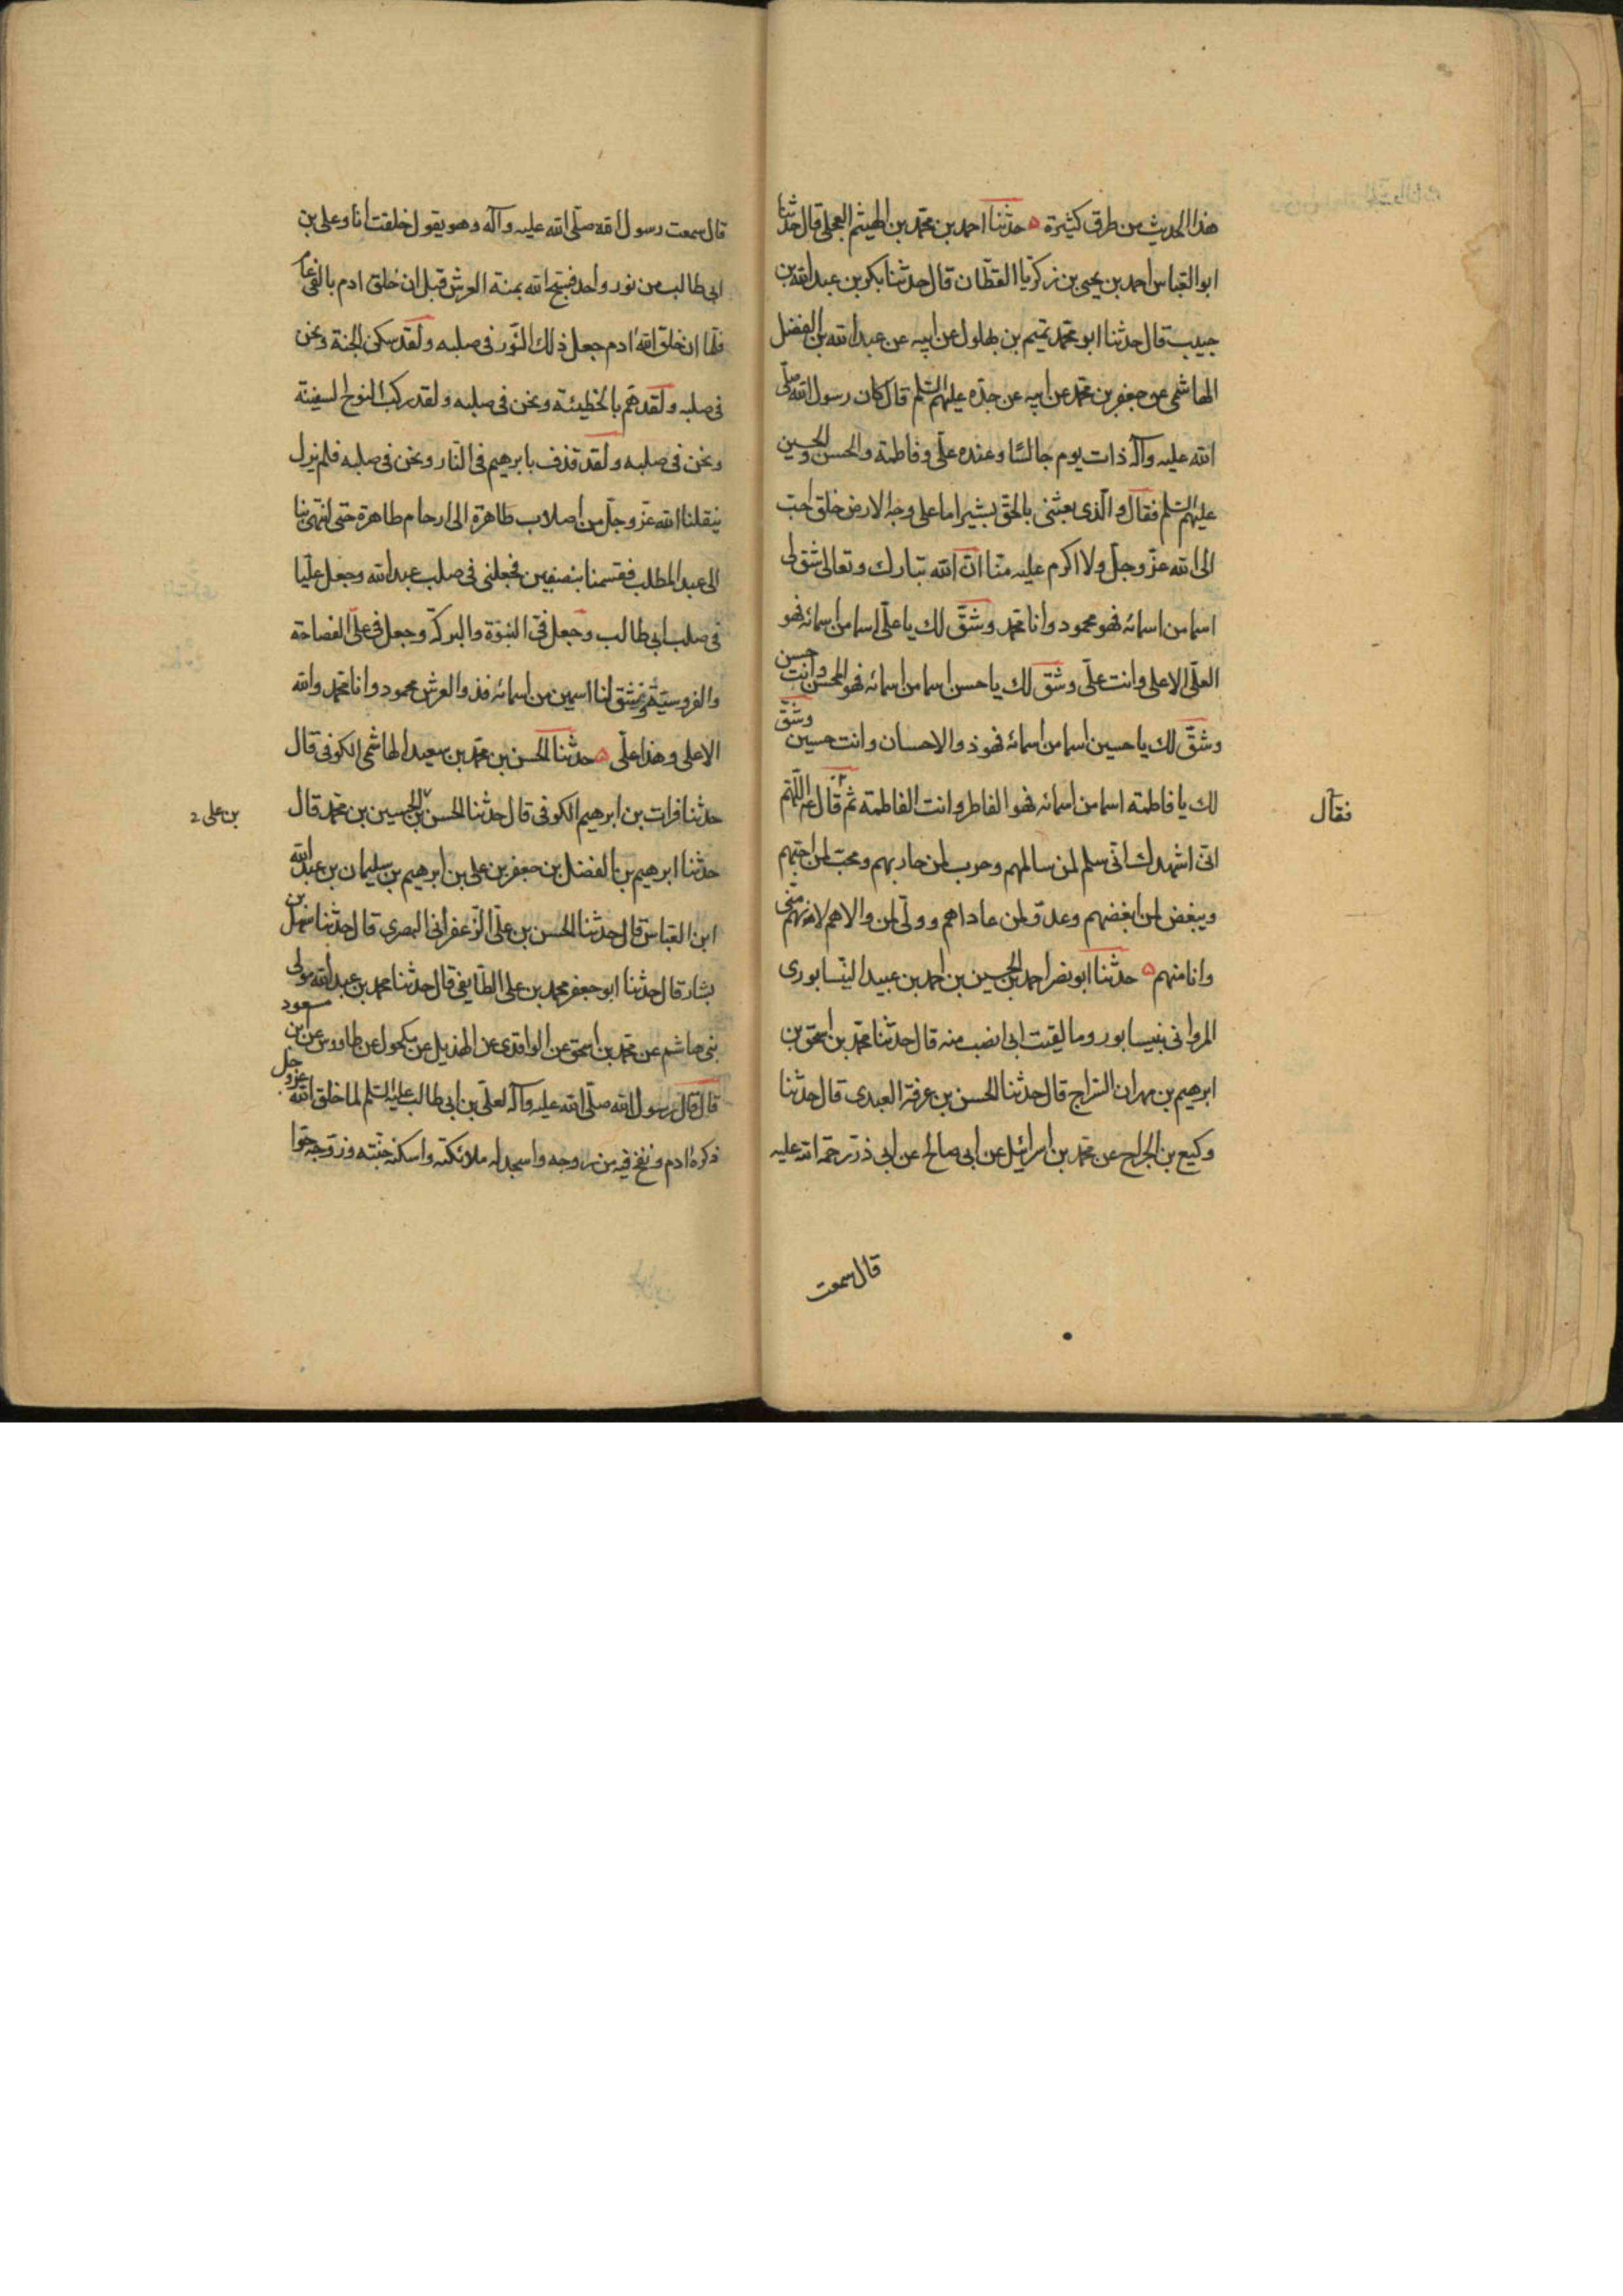 هذا الحديث من طرق كثيرة ه حدثنا احمد بن محمد بن الهيثم العجلى قال حدثنا
ابو العباس احمد بن يحيى بن زكريا القطان قال حدثنا بكر بن عبد الله بن
حبيب قال حدثنا ابو محمد تميم بن بهلول عن ابيه عن عبد الله بن الفضل
الهاشمى عن جعفر بن محمد عن ابيه عن جده عليهم السلم قال كان رسول الله صلى
الله عليه وآله ذات يوم جالسًا وعنده على وفاطمة والحسن والحسين
عليهم السلم فقال والذى بعثنى بالحق بشيرا ما على وجه الارض خلق احب
الى الله عز وجل ولا اكرم عليه منا ان الله تبارك وتعالى شق لى
اسما من اسمائه فهو محمود وانا محمد وشق لك يا على اسما من اسمائه فهو
العلى الاعلى وانت على وشق لك يا حسن اسما من اسمائه فهو المحسن وانت حسن
وشق لك يا حسين اسما من اسمائه فهو ذو الاحسان وانت حسين وشق
لك يا فاطمة اسما من اسمائه فهو الفاطر وانت الفاطمة ثم قال اللهم
فقال
انى اشهدك انى سلم لمن سالمهم وحرب لمن حاربهم ومحب لمن احبهم
ومبغض لمن ابغضهم وعدو لمن عاداهم وولى لمن والاهم لانهم منى
وانا منهم ه حدثنا ابو نصر احمد بن الحسين بن احمد بن عبيد النيسابورى
المروانى بنيسابور وما لقيت انصب منه قال حدثنا محمد بن اسحق بن
ابرهيم بن مهران السراج قال حدثنا الحسن بن عرفة العبدى قال حدثنا
وكيع بن الجراح عن محمد بن اسرائيل عن ابى صالح عن ابى ذر رحمة الله عليه
قال سمعت
قال سمعت رسول الله صلى الله عليه وآله وهو يقول خلقت انا وعلى بن
ابى طالب من نور واحد نسبح الله يمنة العرش قبل ان خلق ادم بالفى عام
فلما ان خلق الله ادم جعل ذلك النور فى صلبه ولقد سكن الجنة ونحن
فى صلبه ولقد هم بالخطيئة ونحن فى صلبه ولقد ركب نوح السفينة
ونحن فى صلبه ولقد قذف بابرهيم فى النار ونحن فى صلبه فلم يزل
ينقلنا الله عز وجل من اصلاب طاهرة الى ارحام طاهرة حتى انتهى بنا
الى عبد المطلب فقسمنا بنصفين فجعلنى فى صلب عبد الله وجعل عليا
فى صلب ابى طالب وجعل فى النبوة والبركة وجعل فى على الفصاحة
والفروسية وشق لنا اسمين من اسمائه فذو العرش محمود وانا محمد والله
الاعلى وهذا على ه حدثنا الحسن بن محمد بن سعيد الهاشمى الكوفى قال
حدثنا فرات بن ابرهيم الكوفى قال حدثنا الحسن بن الحسين بن محمد قال
بن على
حدثنا ابرهيم بن الفضل بن جعفر بن على بن ابرهيم بن سليمان بن عبد الله
ابن العباس قال حدثنا الحسن بن على الزعفرانى البصرى قال حدثنا سهل بن
بشار قال حدثنا ابو جعفر محمد بن على الطايفى قال حدثنا محمد بن عبد الله مولى
بنى هاشم عن محمد بن اسحق عن الواقدى عن الهذيل عن مكحول عن طاوس عن ابن مسعود
قال قال رسول الله صلى الله عليه وآله لعلى بن ابى طالب عليه السلم لما خلق الله عز وجل
ذكره ادم ونفخ فيه من روحه واسجد له ملائكته واسكنه جنته وزوجه حوا